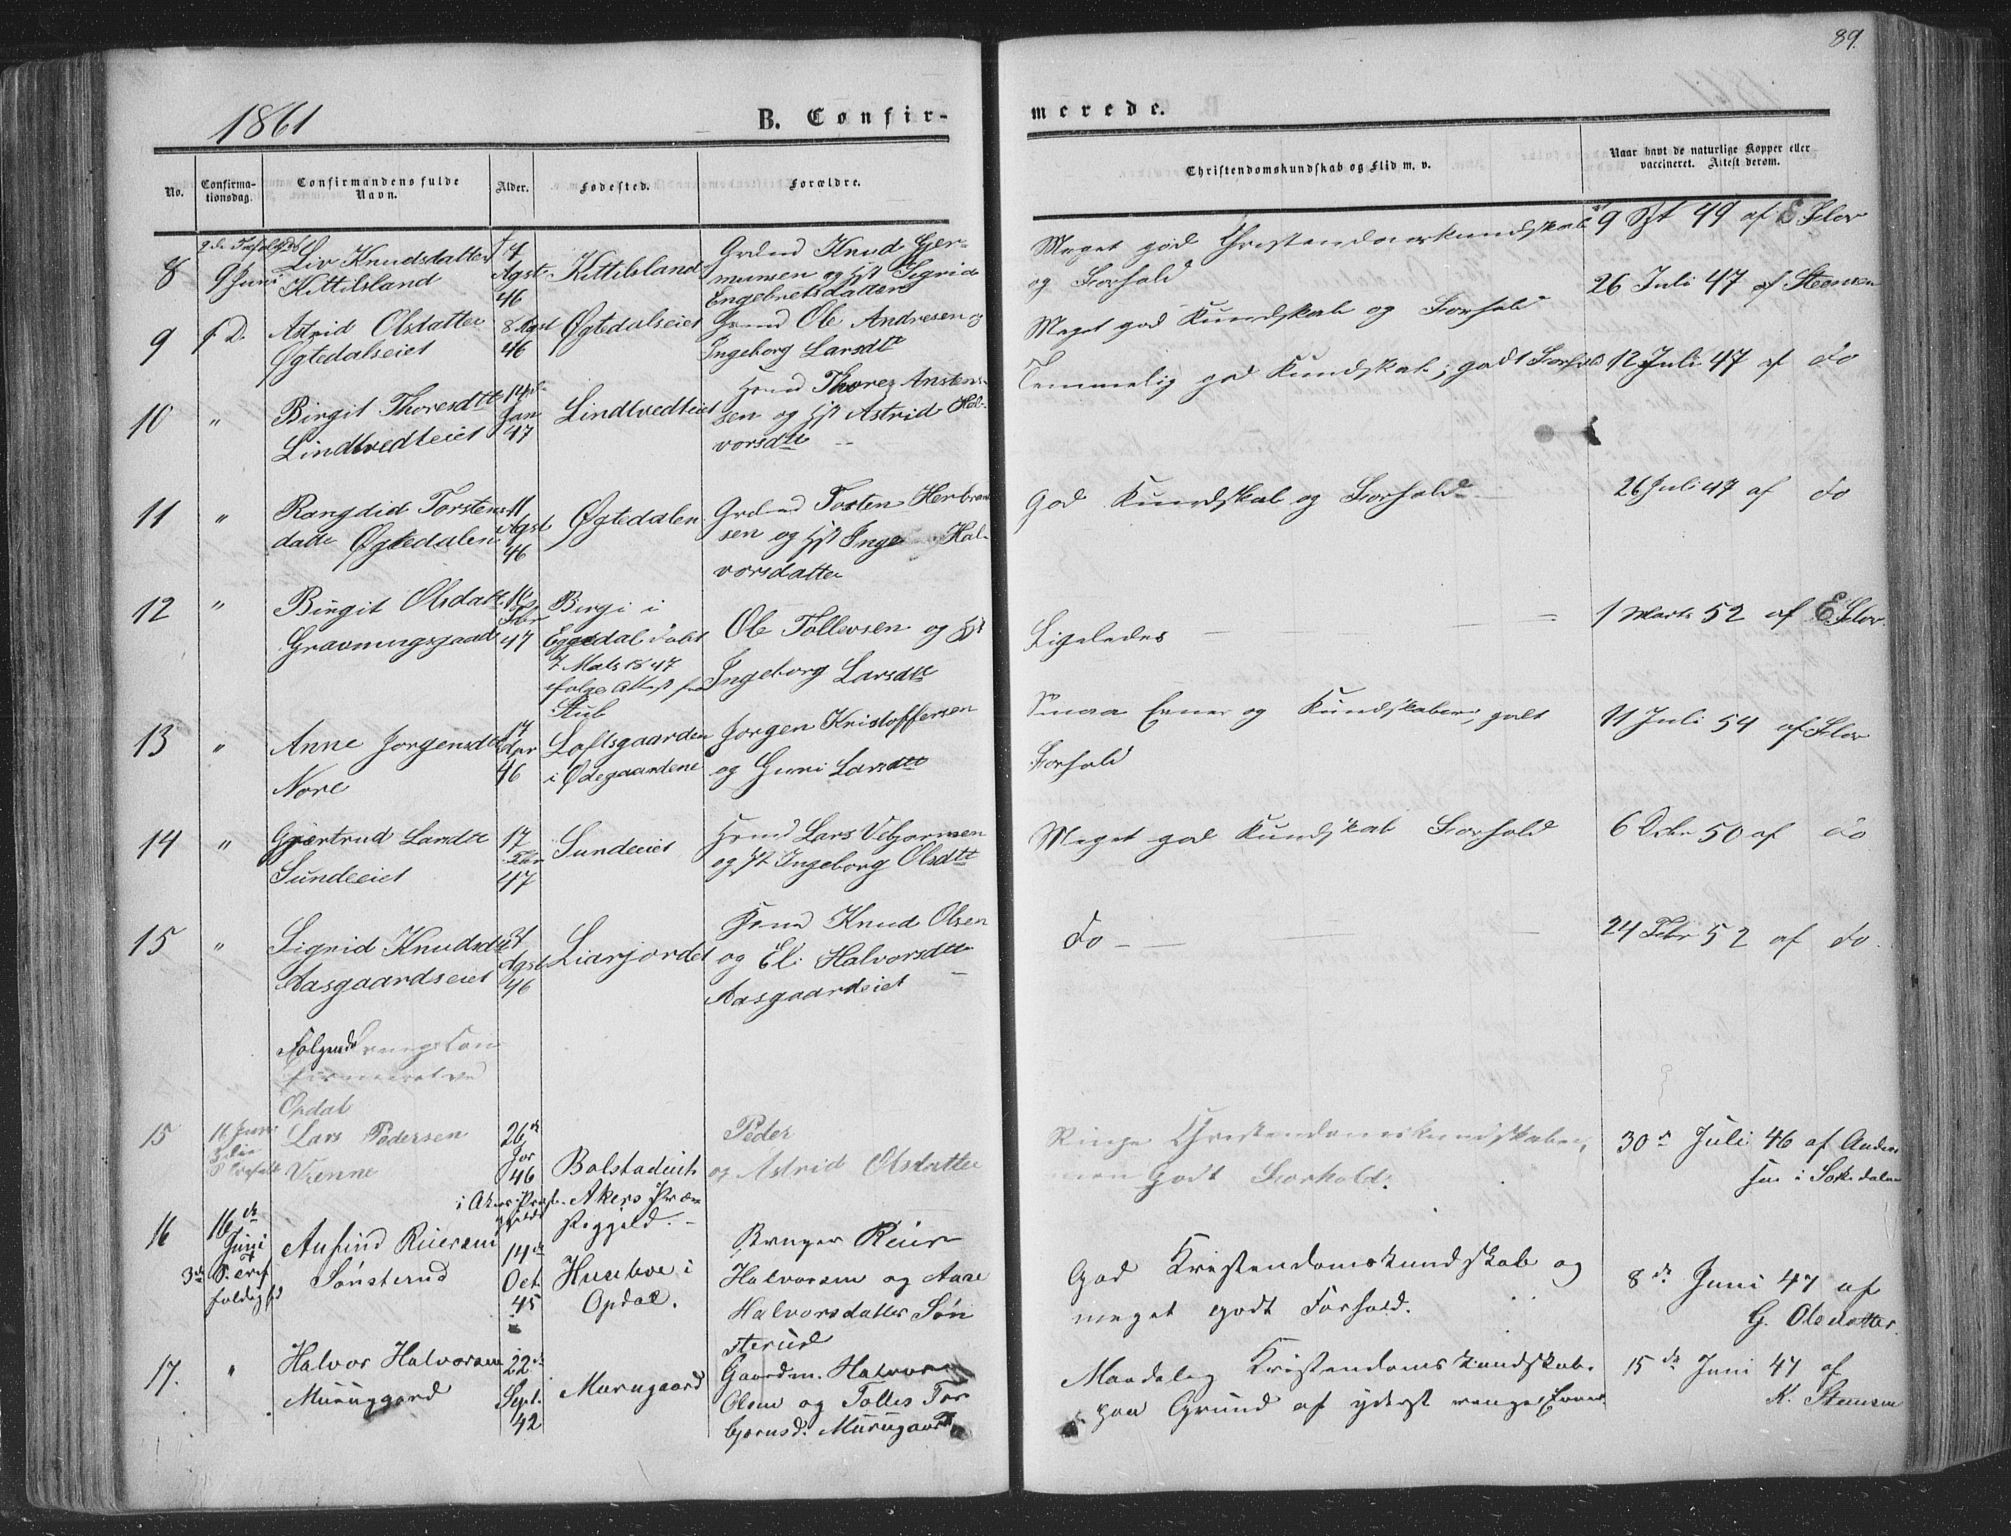 89.
1861
B. Confir-
merede.
No.
Confirma-
tionsdag.
Confirmandens fulde
Navn.
Alder.
Fødested.
Forældre.
Christendomskundskab og Flid m. v.
Naar havt de naturlige Kopper eller
vaccineret. Attest derom.
8
9 Juni
Liv Knudsdatter
Kittilsland
4
Agst
46
Kittilsland
Grdmd Knud Gjer-
mumsen og Hst Sigrid
Engebretsdatter
Meget god Christendomskundskab
og Forhold
9 Spt 49 af E Flor
9
Astrid Olsdatter
Øgtedalseiet
8 Agst
46
Øgtedalseiet
Hmd Ole Andresen og
Ingeborg Larsdtt
Meget god Kundskab og Forhold
26 Juli 47 af Steensen
10
"
Birgit Thoresdtt
Lindtvedteiet
14de
Jan
47
Lindtvedteiet
Hmd Thorez Ansten-
sen og Hst Astrid Hal-
vorsdtt
Temmelig god Kundskab, godt Forhold
12 Juli 47 af do
11
"
Rangdid Torstens
datte Øgtedalen
11
Agst
46
Øgtedalen
Grdmd Tosten Herbran
sen og Hst Inge Hal-
vorsdatter
God Kundskab og Forhold
26 Juli 47 af do
12
"
Birgit Olsdatt
Gravningsgaard
Fbr
47
Bergi i
Eggedal døbt
7 Mats 1847
ifølge Attest fra
Stub
Ole Tollevsen og Hst
Ingeborg Larsdtt
Ligeledes
1 Marts 52 af E Flor
13
"
Anne Jorgensdtt
Nore
17
46
Loftsgaarden
i Ødegaardene
Jorgen Kristoffersen
og Guni Larsdtt
Smaa Evner og Kundskaber, godt
Forhold
11 Juli 54 af Flor
14
"
Gjertrud Larsdtt
Sundeeiet
17
Fbr
47
Sundeeiet
Hmd Lars Vebjornsen
og Hst Ingeborg Olsdtt
Meget god Kundskab Forhold
6 Octbr 50 af do
15
"
Sigrid Knudsdtt
Aasgaardseiet
31
Agst
46
Liarjordet
Hmd Knud Olsen
og Eli Halvorsdtt
Aasgaardeiet
do
24 Febr 52 af do.
Følgende unge Con
firmeret ved
Opdal
15
16 Juni
Lars Pedersen
Vrenne
26de
46
Bolstadeiet
i Akers Præstegjeld
Akers Præ
stegjeld.
Peder
og Astrid Olsdatter
Ringe Christendomskundskaber,
men godt Forhold.
30te Juli 46 af Ander
sen i Sørkedalen
16
16de
Juni
3de S. Tref
foldighd
Anfind Reiersen
Sønsterud
14de
Oct.
45
Huseboe i
Opdal.
Bruger Reier
Halvorsen og Aase
Halvorsdatter Søn
sterud
God Kristendomskundskab og
meget godt Forhold.
8de Juni 47 af
G. Olsdatter.
17.
"
Halvor Halvorsen
Muruggard
22de
Sept.
42
Murugaard
Gaardm. Halvor
Olsen og Tolles Tor
bjørnsd. Murugaard
Maadelig Kristendomskundskab.
paa Grund af yderst ringe Evner
15de Juni 47 af
K. Steensen